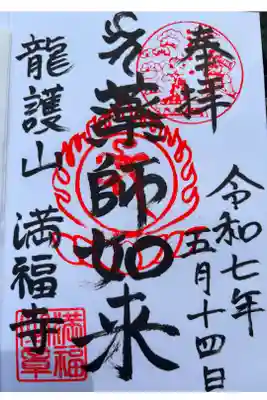 奉拝
令和七年
五月十四日
薬師如来
龍護山 満福寺